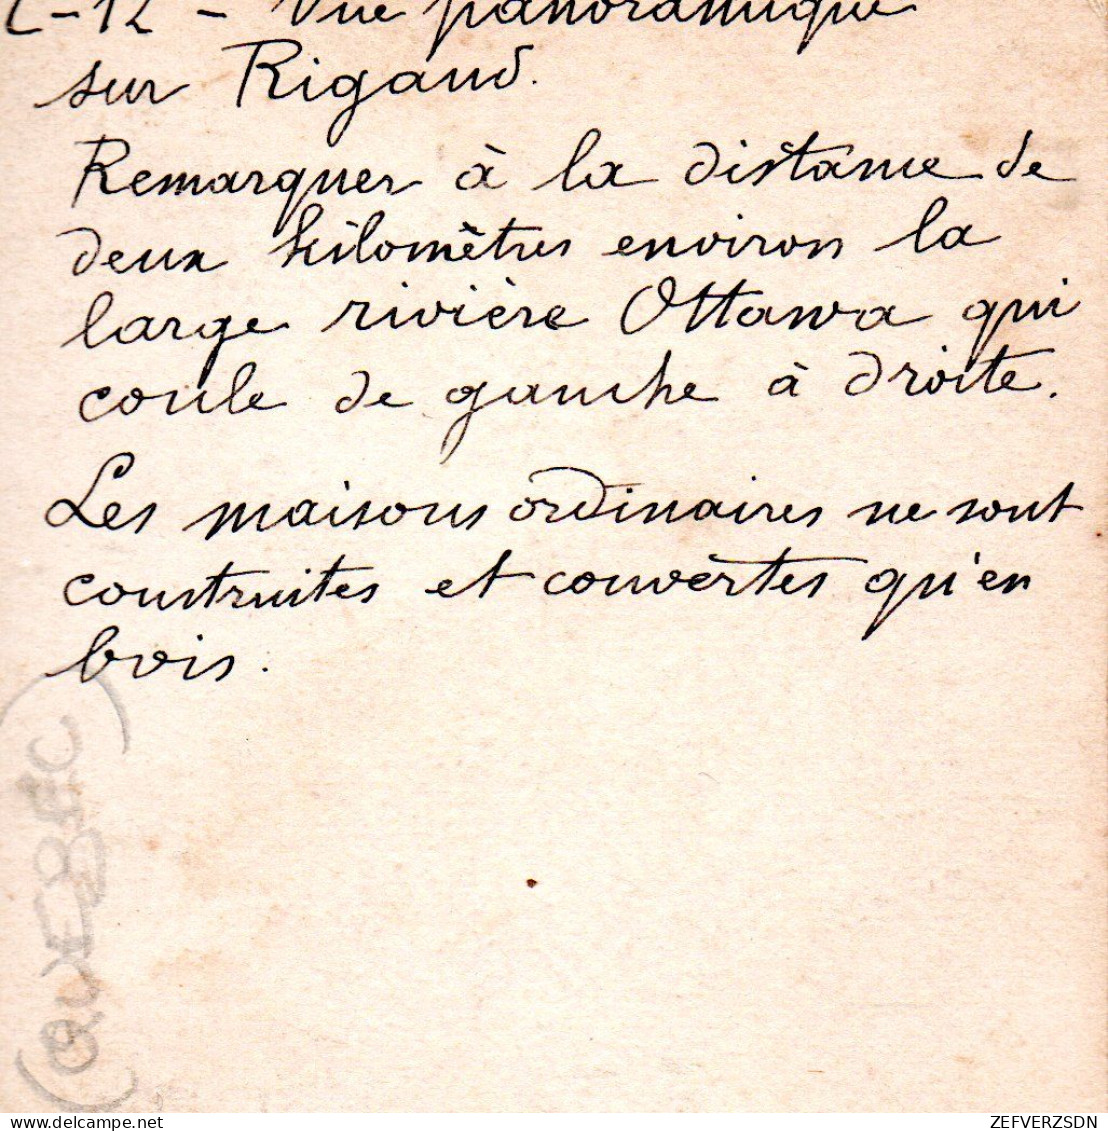 2-12 - Vue panoramique
sur Rigaud.
Remarquer à la distance de
deux kilomètres environ la
large rivière Ottawa qui
coule de gauche à droite.
Les maisons ordinaires ne sont
construites et couvertes qu'en
bois.
(QUEBEC)
ZEFVERZSDN